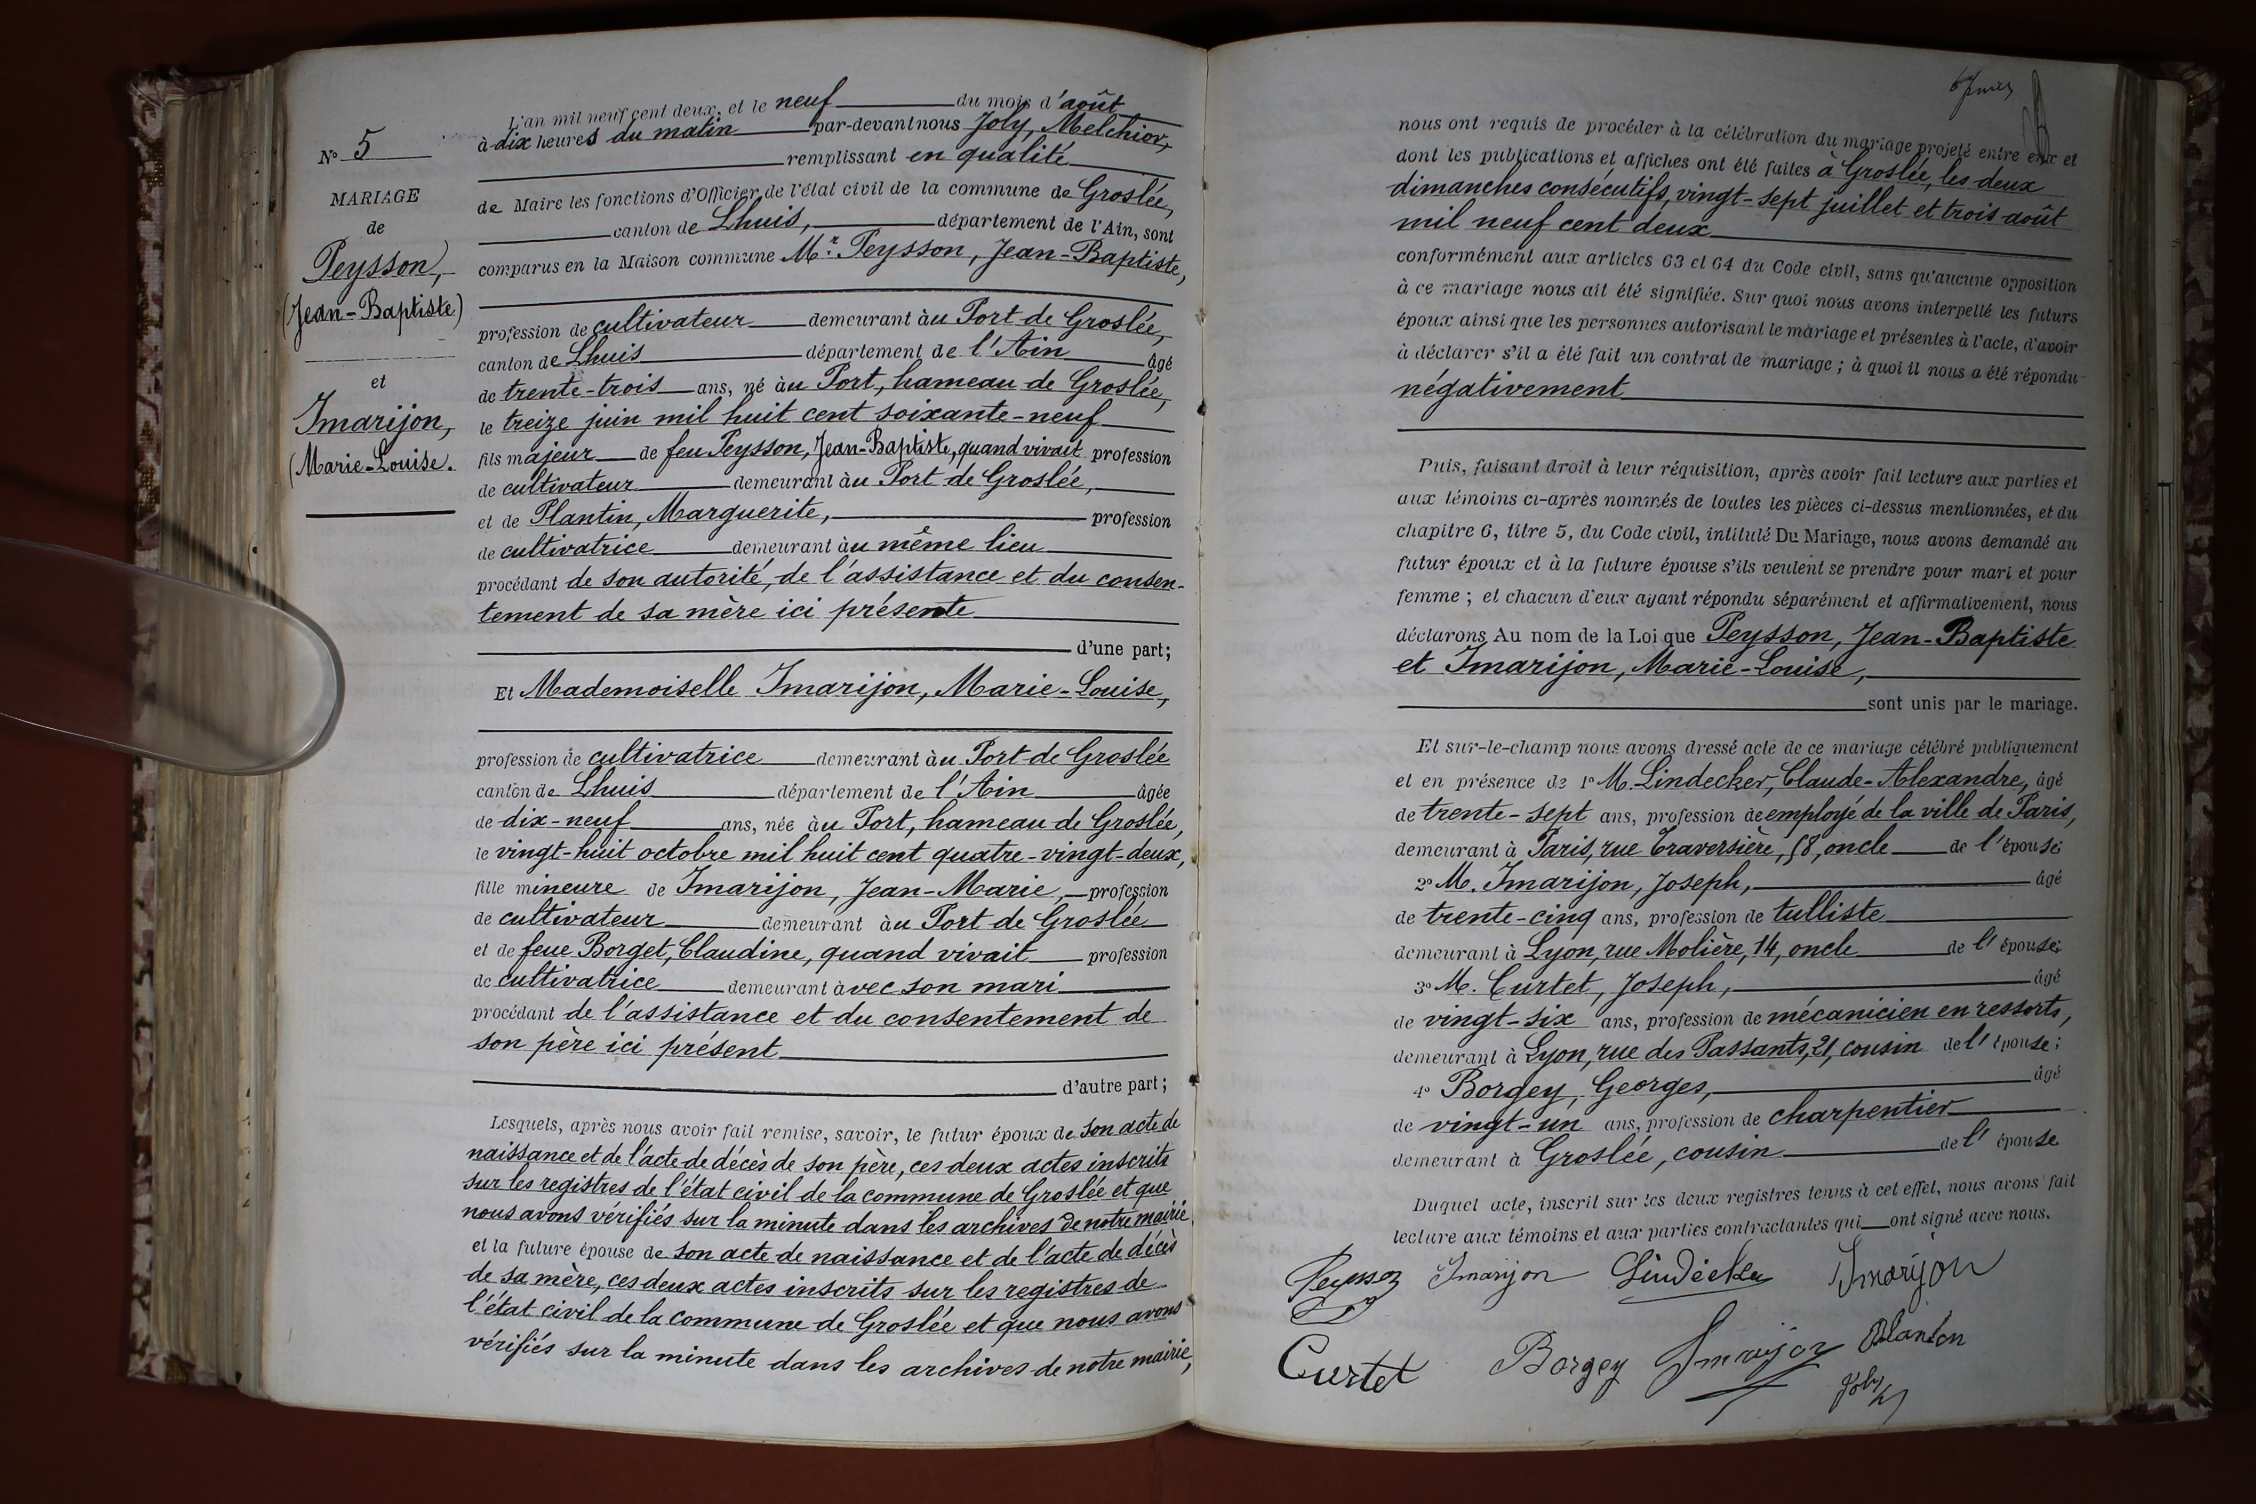 N° 5
MARIAGE
de
Peysson,
(Jean-Baptiste)
et
Imarijon,
(Marie-Louise.
L'an mil neuf cent deux, et le neuf du mois d'août
à dix heures du matin par-devant nous Joly, Melchior,
remplissant en qualité
de Maire les fonctions d'Officier de l'état civil de la commune de Groslée,
canton de Lhuis, département de l'Ain, sont
comparus en la Maison commune Mr. Peysson, Jean-Baptiste,
profession de cultivateur demeurant àu Port de Groslée,
canton de Lhuis département de l'Ain âgé
de trente-trois ans, né àu Port, hameau de Groslée,
le treize juin mil huit cent soixante-neuf
fils majeur de feu Peysson, Jean-Baptiste, quand vivait profession
de cultivateur demeurant àu Port de Groslée,
et de Plantin, Marguerite, profession
de cultivatrice demeurant àu même lieu
procédant de son autorité, de l'assistance et du consen-
tement de sa mère ici présente
d'une part;
Et Mademoiselle Imarijon, Marie-Louise,
profession de cultivatrice demeurant àu Port de Groslée
canton de Lhuis département de l'Ain âgée
de dix-neuf ans, née àu Port, hameau de Groslée,
le vingt-huit octobre mil huit cent quatre-vingt-deux,
fille mineure de Imarijon, Jean-Marie, profession
de cultivateur demeurant àu Port de Groslée
et de feue Borget, Claudine, quand vivait profession
de cultivatrice demeurant àvec son mari
procédant de l'assistance et du consentement de
son père ici présent
d'autre part;
Lesquels, après nous avoir fait remise, savoir, le futur époux de son acte de
naissance et de l'acte de décès de son père, ces deux actes inscrits
sur les registres de l'état civil de la commune de Groslée et que
nous avons vérifiés sur la minute dans les archives de notre mairie
et la future épouse de son acte de naissance et de l'acte de décès
de sa mère, ces deux actes inscrits sur les registres de
l'état civil de la commune de Groslée et que nous avons
vérifiés sur la minute dans les archives de notre mairie,
nous ont requis de procéder à la célébration du mariage projeté entre eux et
dont les publications et affiches ont été faites à Groslée, les deux
dimanches consécutifs, vingt-sept juillet et trois août
mil neuf cent deux
conformément aux articles 63 et 64 du Code civil, sans qu'aucune opposition
à ce mariage nous ait été signifiée. Sur quoi nous avons interpellé les futurs
époux ainsi que les personnes autorisant le mariage et présentes à l'acte, d'avoir
à déclarer s'il a été fait un contrat de mariage; à quoi il nous a été répondu
négativement
Puis, faisant droit à leur réquisition, après avoir fait lecture aux parties et
aux témoins ci-après nommés de toutes les pièces ci-dessus mentionnées, et du
chapitre 6, titre 5, du Code civil, intitulé Du Mariage, nous avons demandé au
futur époux et à la future épouse s'ils veulent se prendre pour mari et pour
femme; et chacun d'eux ayant répondu séparément et affirmativement, nous
déclarons Au nom de la Loi que Peysson, Jean-Baptiste
et Imarijon, Marie-Louise,
sont unis par le mariage.
Et sur-le-champ nous avons dressé acte de ce mariage célébré publiquement
et en présence de 1° M. Lindecker, Claude-Alexandre, âgé
de trente-sept ans, profession de employé de la ville de Paris,
demeurant à Paris, rue Traversière, 58, oncle de l'épouse
2° M. Imarijon, Joseph, âgé
de trente-cinq ans, profession de tulliste
demeurant à Lyon, rue Molière, 14, oncle de l'épouse;
3° M. Curtet, Joseph, âgé
de vingt-six ans, profession de mécanicien en ressorts,
demeurant à Lyon, rue des Passants, 21, cousin de l'épouse;
4° Borgey, Georges, âgé
de vingt-un ans, profession de charpentier
demeurant à Groslée, cousin de l'épouse
Duquel acte, inscrit sur les deux registres tenus à cet effet, nous avons fait
lecture aux témoins et aux parties contractantes qui ont signé avec nous.
Peysson Imarijon Lindecker Imarijon
Curtet Borgey Imarijon Plantin
Joly